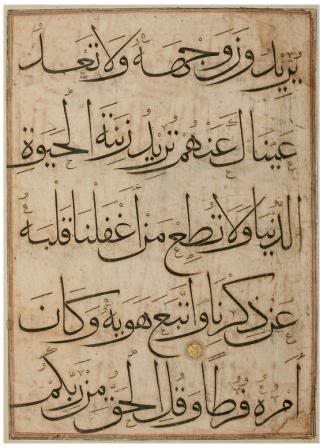 يُرِيدُونَ وَجْهَهُ وَلَا تَعْدُ
عَيْنَاكَ عَنْهُمْ تُرِيدُ زِينَةَ الْحَيَوةِ
الدُّنْيَا وَلَا تُطِعْ مَنْ أَغْفَلْنَا قَلْبَهُ
عَنْ ذِكْرِنَا وَاتَّبَعَ هَوَيهُ وَكَانَ
أَمْرُهُ فُرُطًا وَقُلِ الْحَقُّ مِنْ رَبِّكُمْ